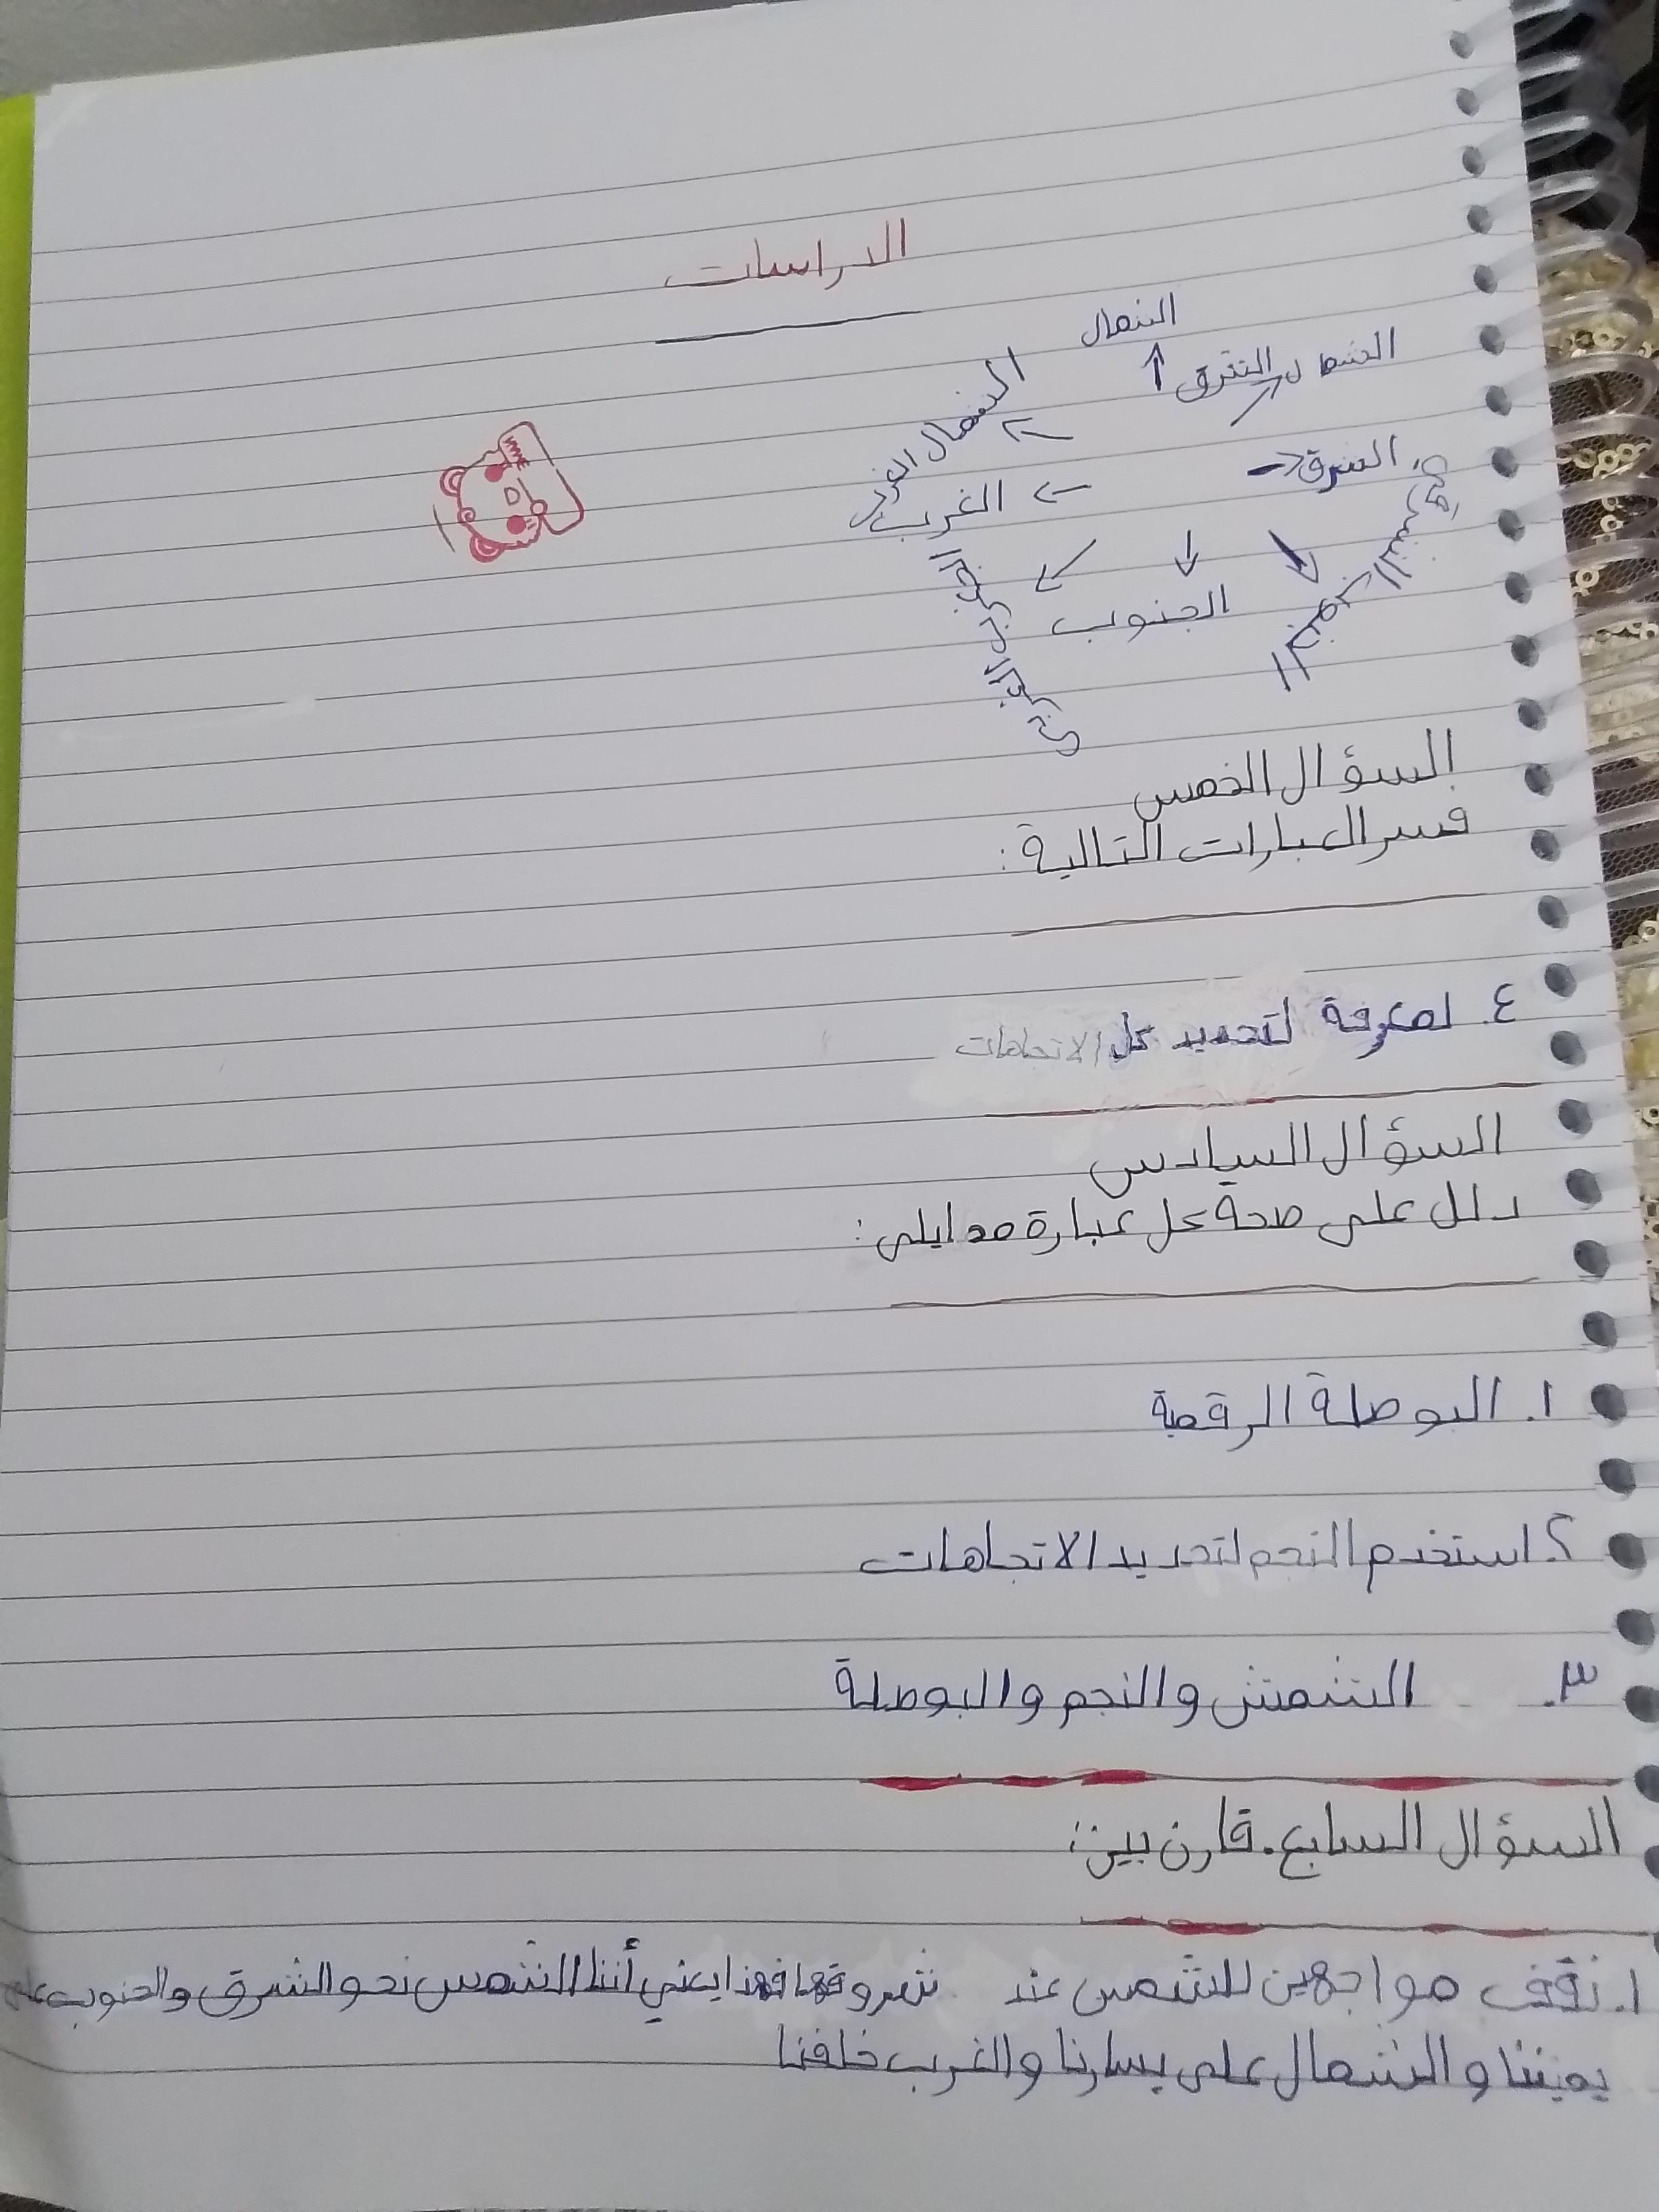 الدراسات
الشمال
الشمال الشرق
الشمال الغرب
الشرق
الغرب
الجنوب
الجنوب الشرقي
السؤال الخمس
فسر العبارات التالية :
٤. لمعرفة لتحديد كل الاتجاهات
السؤال السادس
دلل على صحة كل عبارة مما يلي :
١. البوصلة الرقمية
٢. استخدم النجم لتحديد الاتجاهات
٣. الشمش والنجم والبوصلة
السؤال السابع. قارن بين:
١. نقف مواجهين للشمس عند شروقها فهذا يعني أننا الشمس نحو الشرق والجنوب على
يميننا والشمال على يسارنا والغرب خلفنا